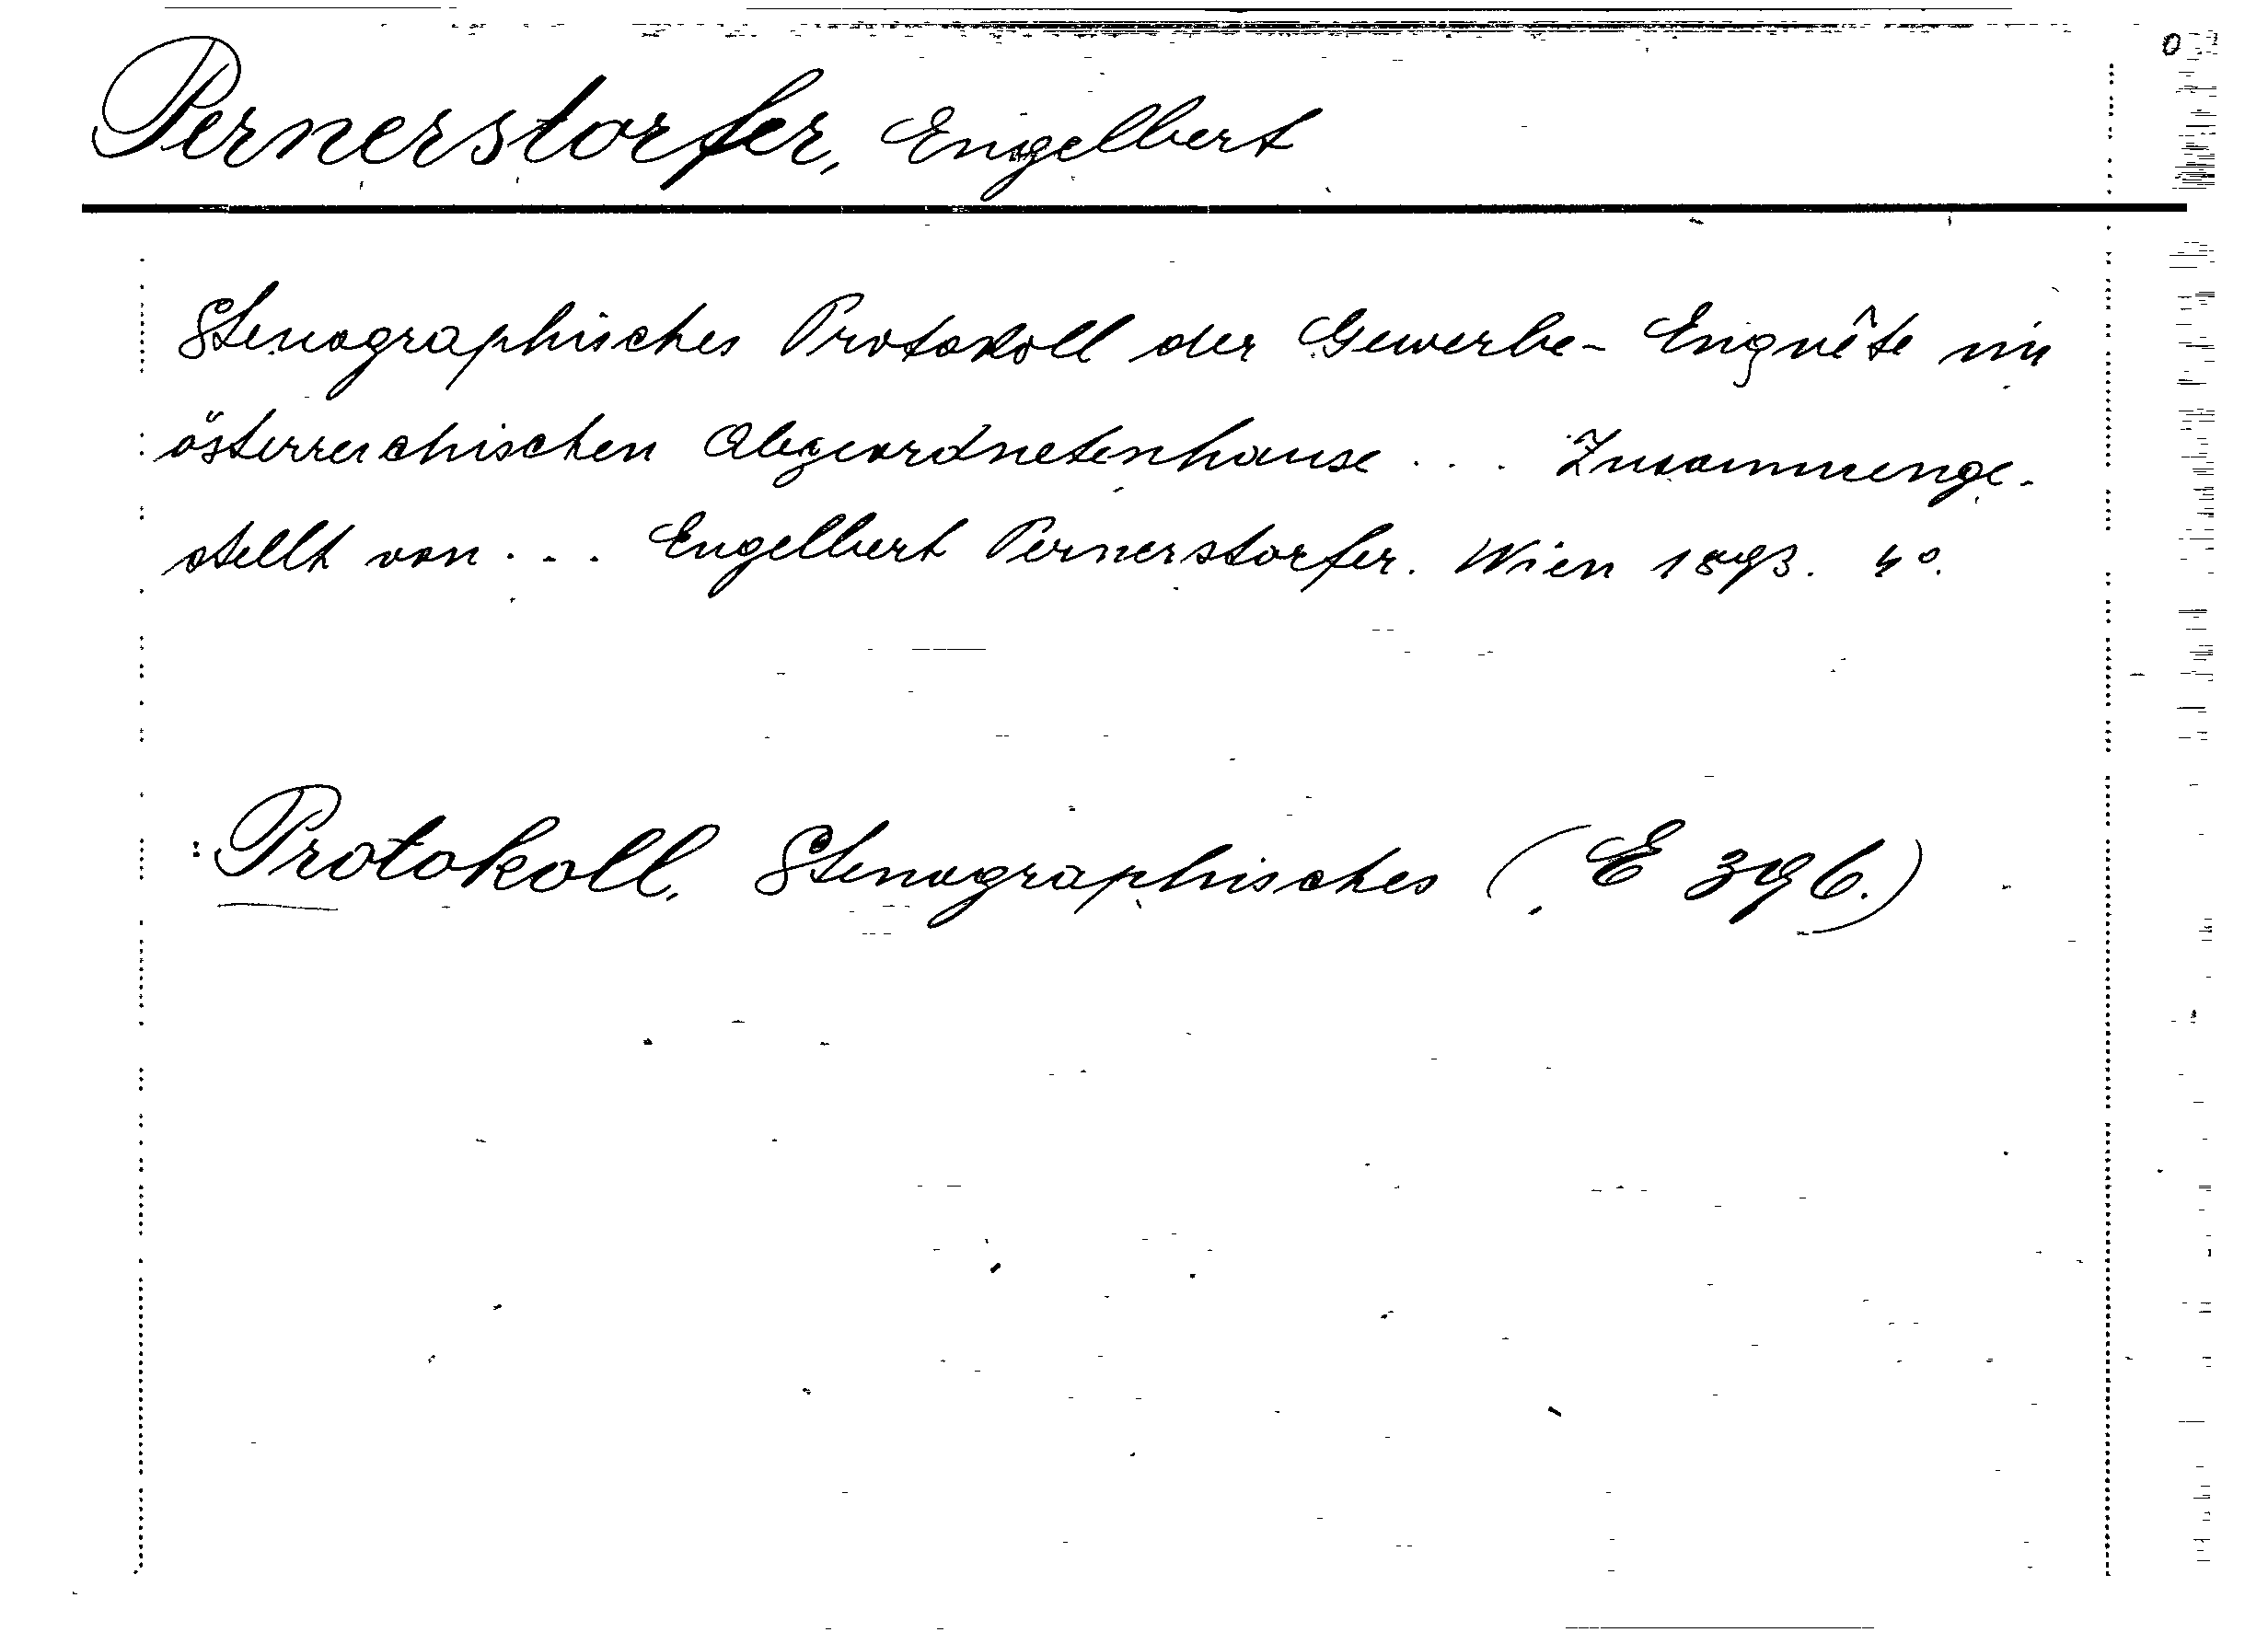 Pernerstorfer, Engelbert
Stenographisches Protokoll der Gewerbe-Enquête im
österreichischen Abgeordnetenhause... Zusammenge-
stellt von... Engelbert Pernerstorfer. Wien 1893. 4°.
Protokoll, Stenographisches (E 396.)